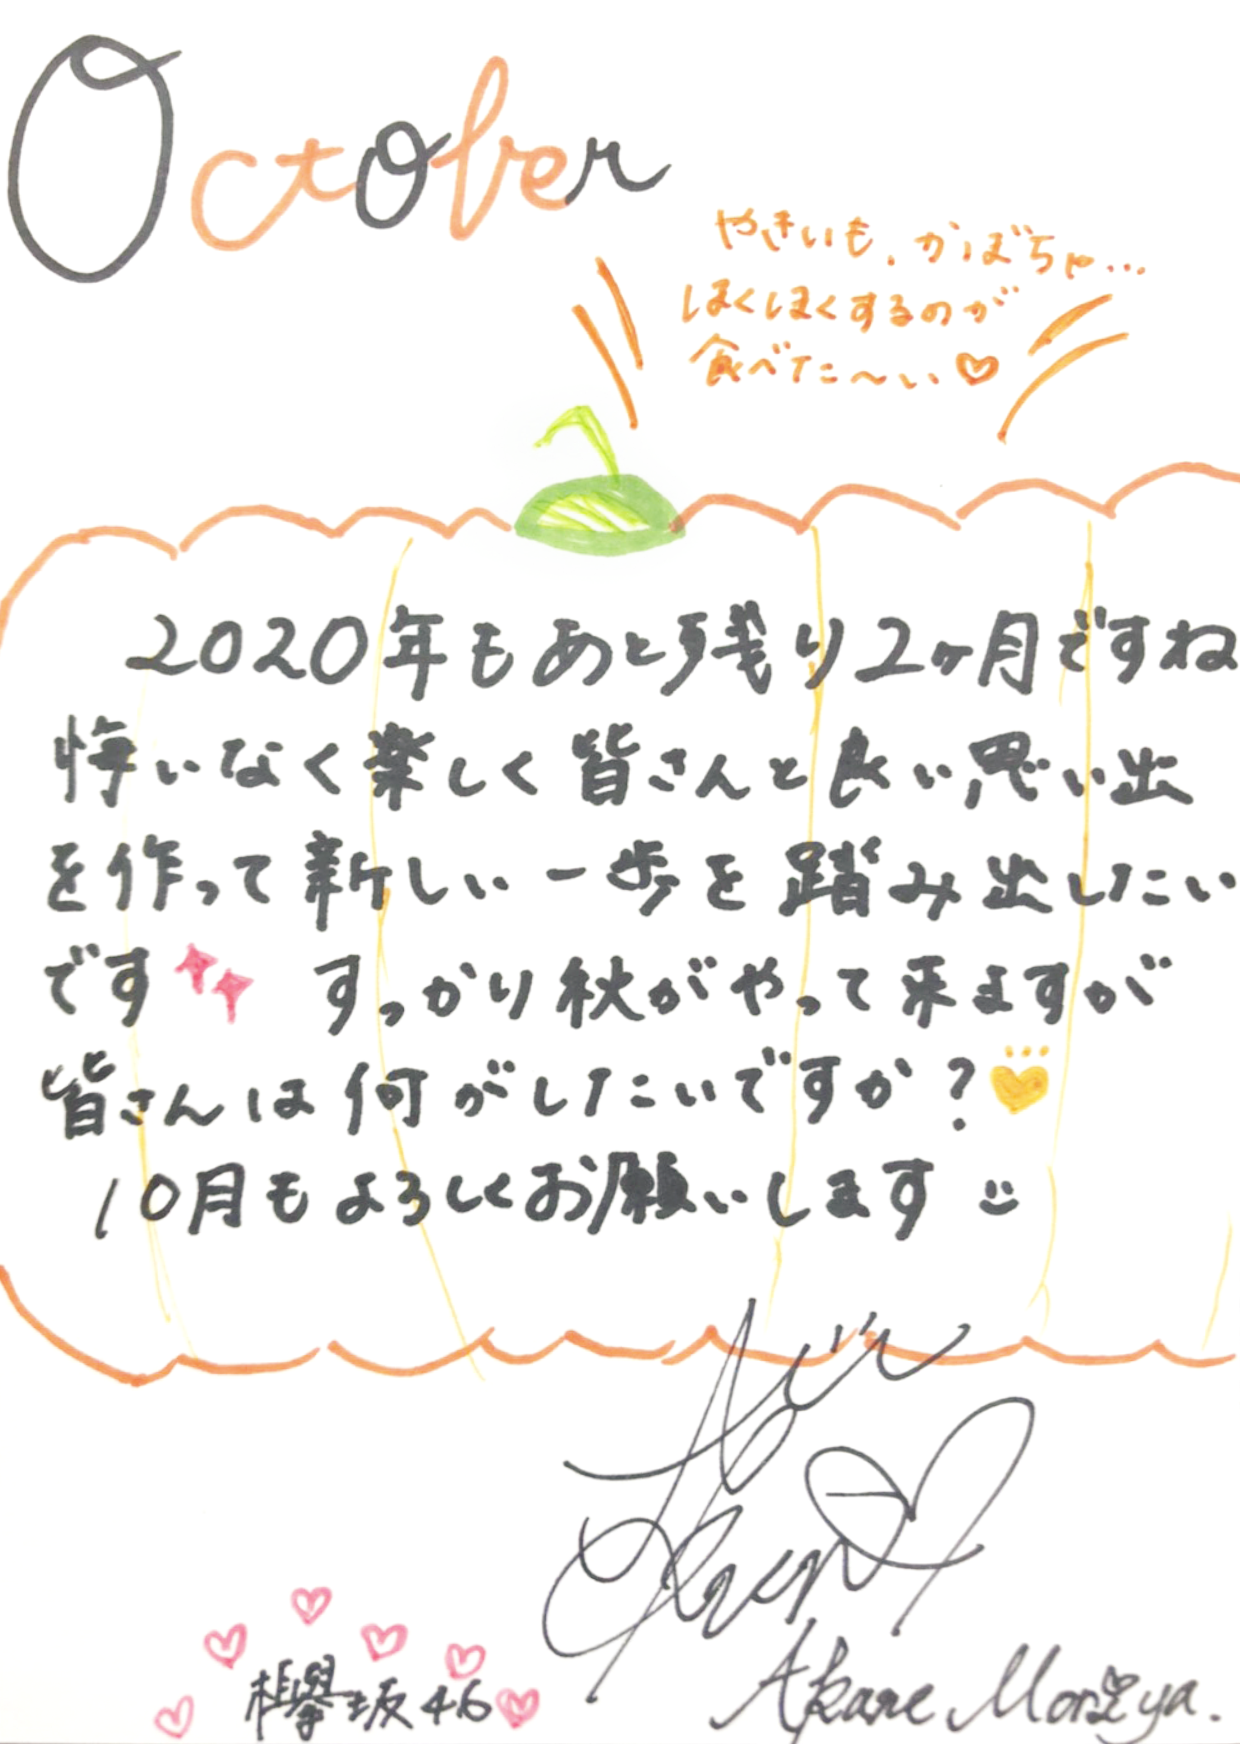 October
やきいも、かぼちゃ...
ほくほくするのが
食べた〜い♡
2020年もあと残り2ヶ月ですね
悔いなく楽しく皆さんと良い思い出
を作って新しい一歩を踏み出したい
です すっかり秋がやって来ますが
皆さんは何がしたいですか?
10月もよろしくお願いします
欅坂46
Akane Moriya.